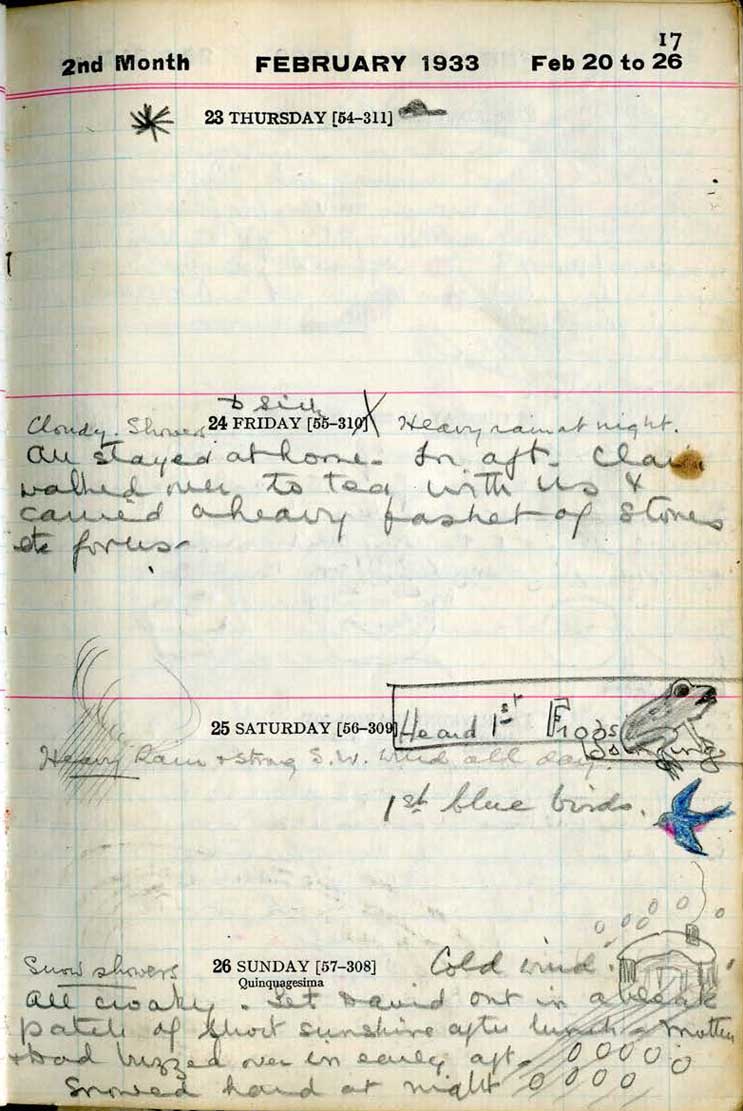 17
2nd Month FEBRUARY 1933 Feb 20 to 26
23 THURSDAY [54-311]
Sick
Cloudy. Showers 24 FRIDAY [55-310] X Heavy rain at night.
All stayed at home. In aft. Clau
walked over to tea with us &
carried a heavy basket of stones
etc for us.
Heard 1st Frogs
25 SATURDAY [56-309] singing
Heavy Rain & strong S.W. wind all day.
1st blue birds.
Snow showers 26 SUNDAY [57-308] Cold wind.
Quinquagesima
All croaky. Let David out in a bleak
patch of short sunshine after lunch. Mother
& Dad buzzed over in early aft.
Snowed hard at night